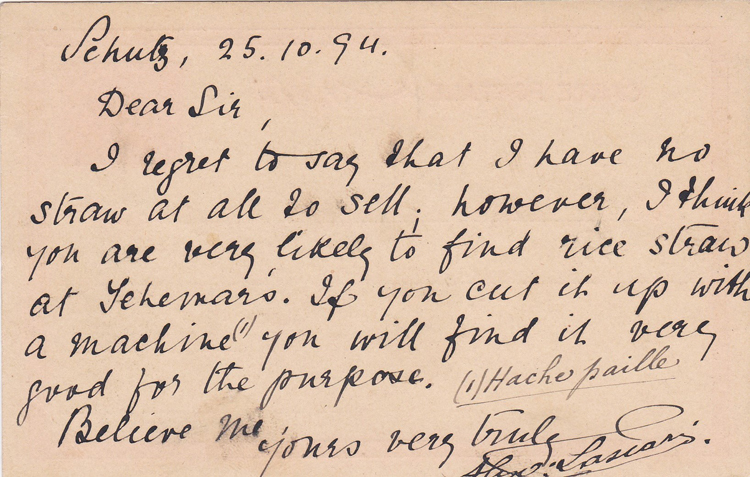 Schutz, 25.10.94.
Dear Sir,
I regret to say that I have no
straw at all to sell; however, I think
you are very likely to find rice straw
at . If you cut it up with
a machine (1) you will find it very
good for the purpose. (1) Hache paille
Believe me
yours very truly
Lascaris.